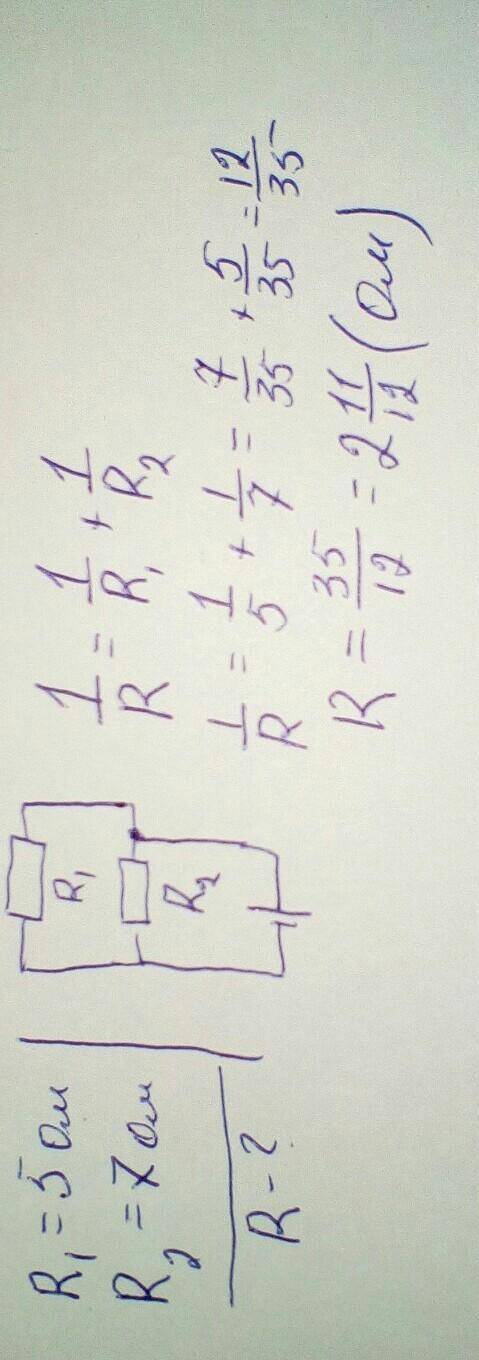 R₁ = 5 Ом
R₂ = 7 Ом
R - ?
R₁
R₂
1/R = 1/R₁ + 1/R₂
1/R = 1/5 + 1/7 = 7/35 + 5/35 = 12/35
R = 35/12 = 2 11/12 (Ом)